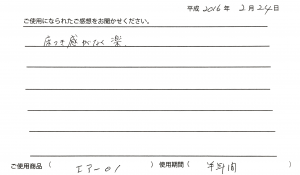 平成 2016年 2月24日
ご使用になられたご感想をお聞かせください。
床つき感がなく楽、
ご使用商品（ エアー01 ）使用期間（ 半年間 ）